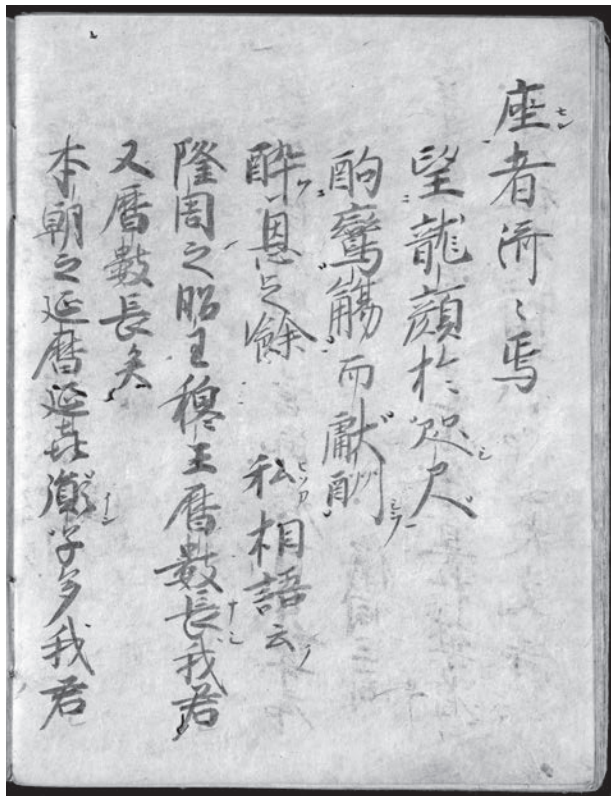 座者済〻焉
望龍顔於咫尺
酌鸞觴而献酬
酔恩之餘 私相語云
隆周之昭王穆王暦数長我君
又暦数長矣
本朝之延暦延喜胤子多我君